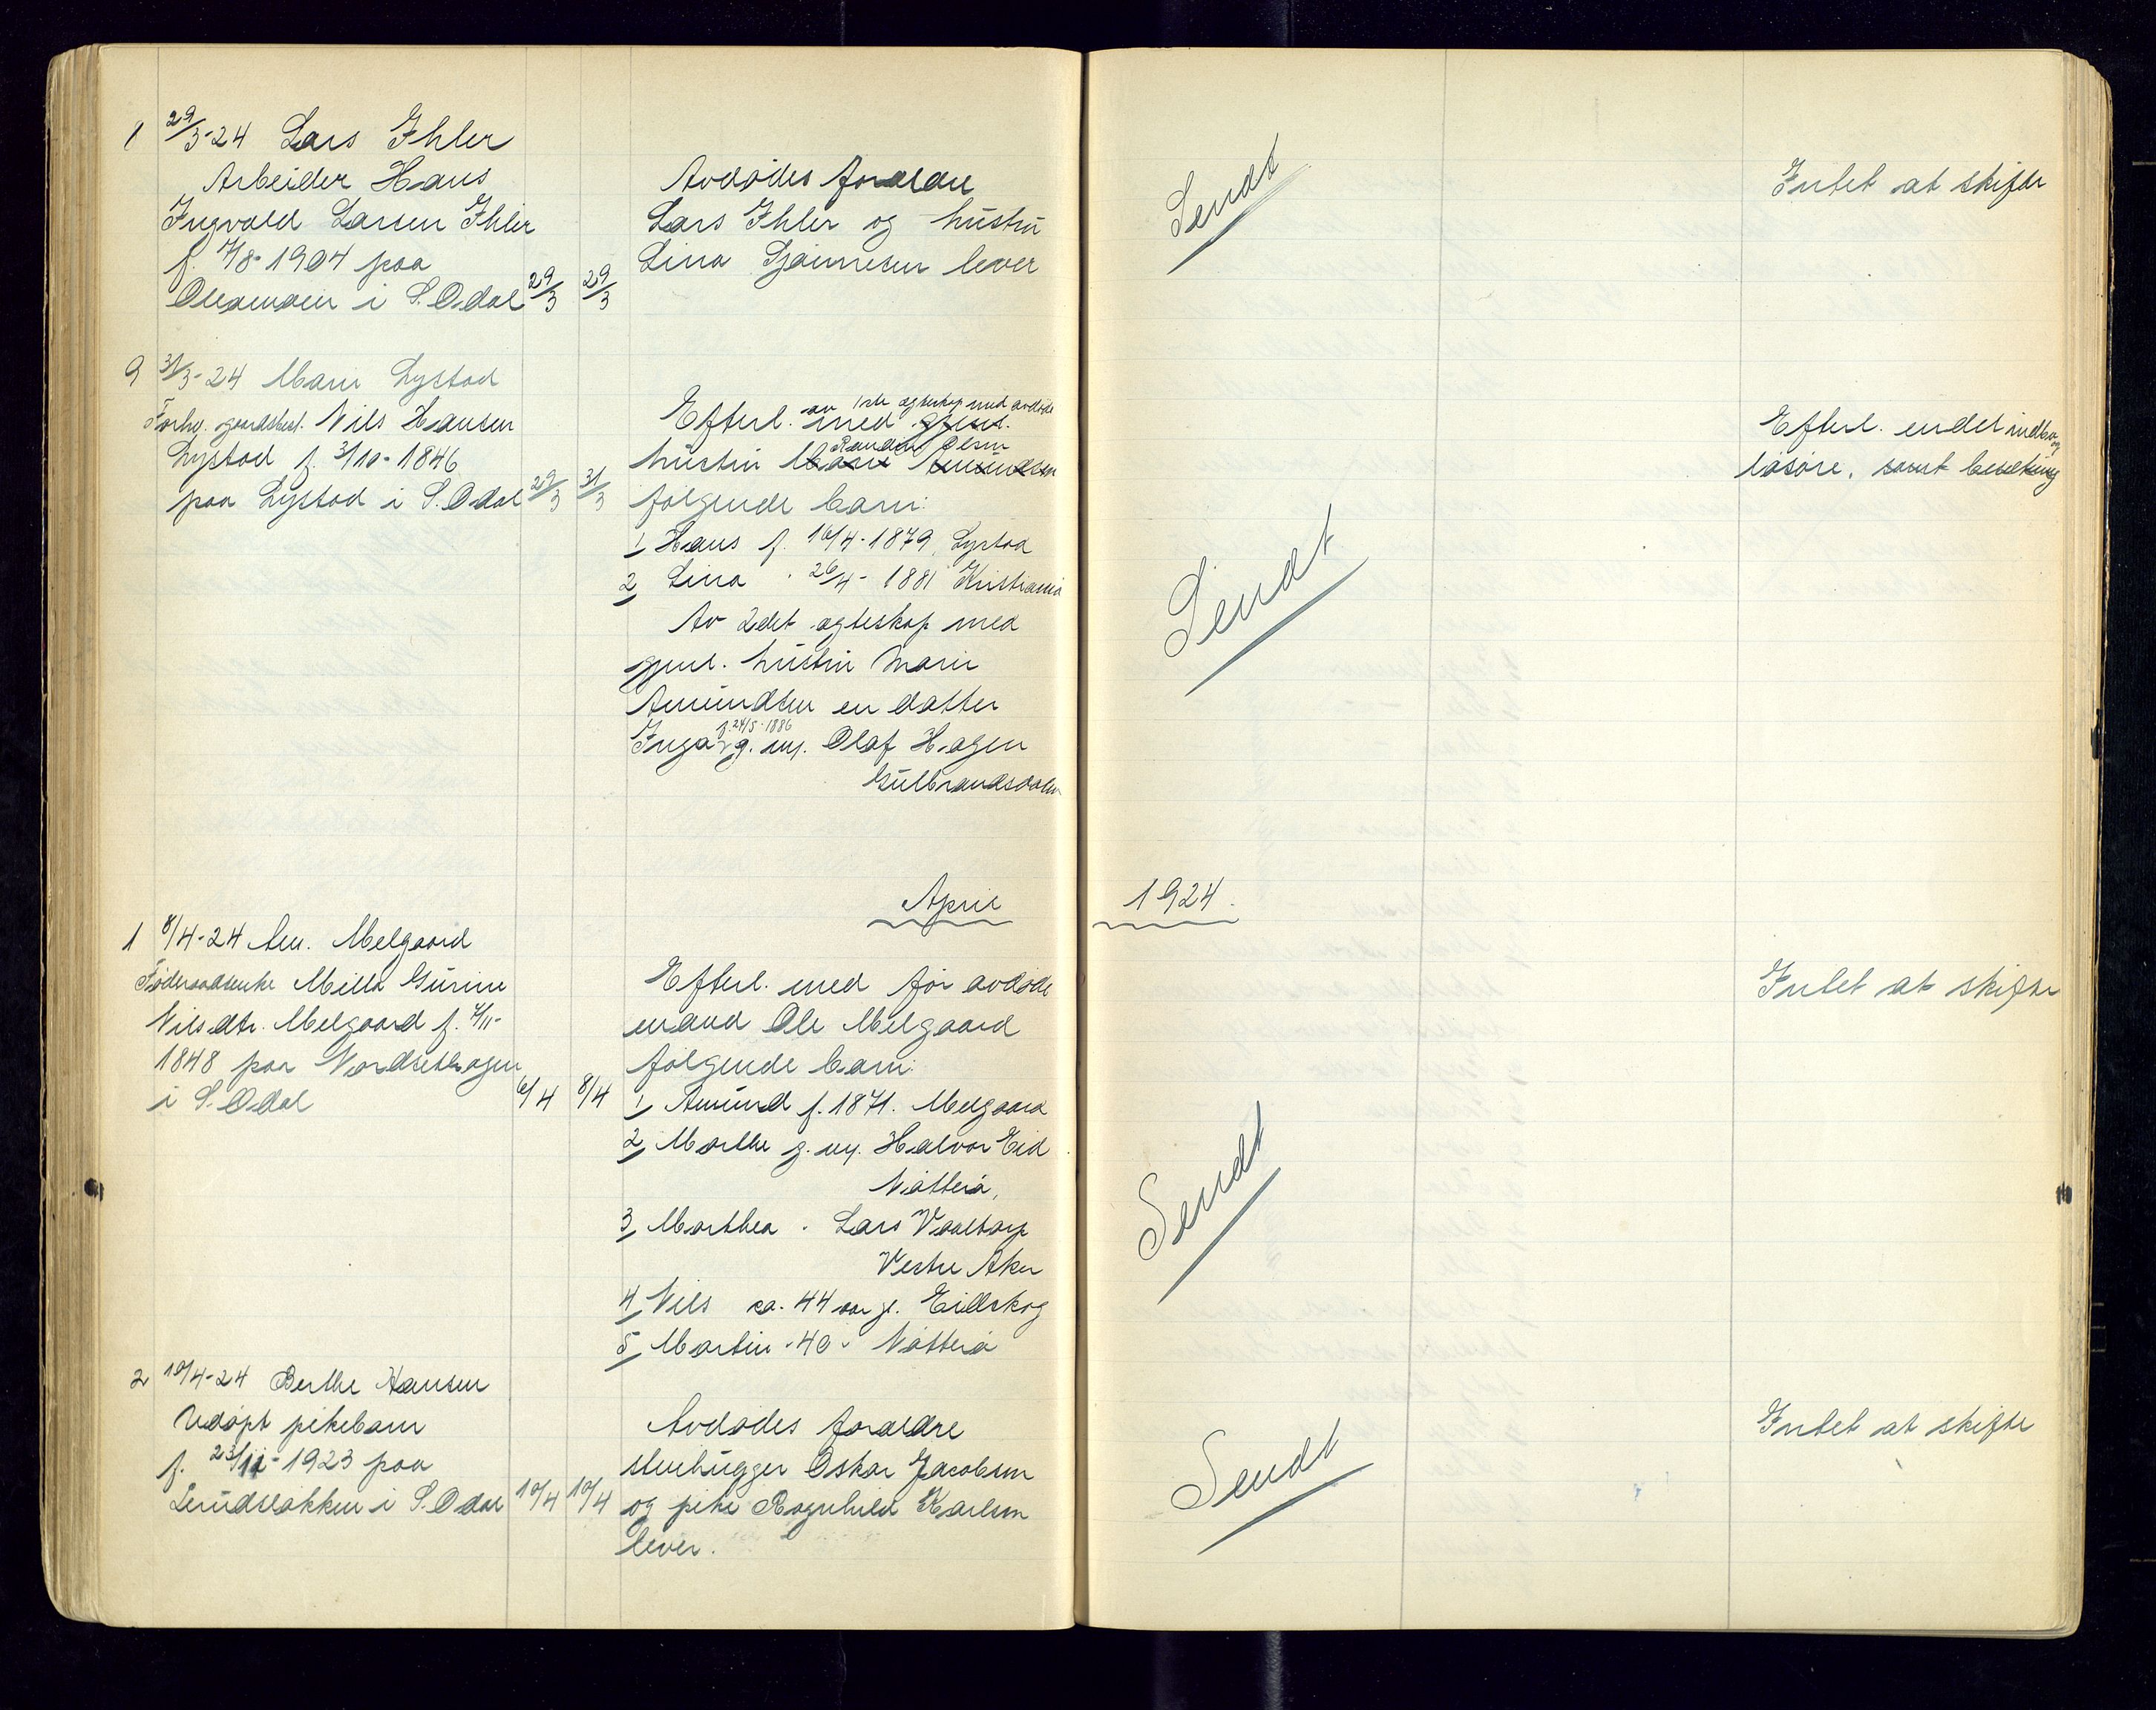 1 29/3-24 Lars Ihler
Arbeider Hans
Ingvald Larsen Ihler
f. 4/8-1904 paa
i S. Odal 29/3 29/3
Avdødes forældre
Lars Ihler og hustru
Lina lever
Sendt
Intet at skifte
9 31/3-24 Mari Lystad
Forhv. gaardbest. Nils Hansen
Lystad f. 3/10-1846
paa Lystad i S. Odal 29/3 31/3
Efterl. av 1ste egteskap med avdøde
med gjenl.
hustru Randi Olsen
Mari Amundsen
følgende barn:
1, Hans f. 16/4-1879, Lystad
2, Lina " 26/4-1881 Kristiania
Av 2det egteskap med
gjenl. hustru Mari
Amundsen en datter
Inga f. 24/5-1886 g. m. Olaf Hagen
Gulbrandsdalen
Sendt
Efterl. endel indbo og
løsøre, samt besetning
April 1924.
1 8/4-24 Am. Melgaard
Føderaadsenke Milla Gurine
Nilsdtr. Melgaard f. 4/11-
1848 paa Nordsethagen
i S. Odal 6/4 8/4
Efterl. med før avdøde
mand Ole Melgaard
følgende barn:
1, Amund f. 1871. Melgaard
2, Marthe g. m. Halvor Eid
Nøtterø,
3, Marthea " Lars Vaaltorp
Vestre Aker
4, Nils ca. 44 aar gl. Eidskog
5, Martin " 40 " Nøtterø
Sendt
Intet at skifte
2 10/4-24 Berthe Hansen
Udøpt pikebarn
f. 23/11-1923 paa
i S. Odal 10/4 10/4
Avdødes forældre
stenhugger Oskar Jacobsen
og pike Ragnhild Karlsen
lever.
Sendt
Intet at skifte